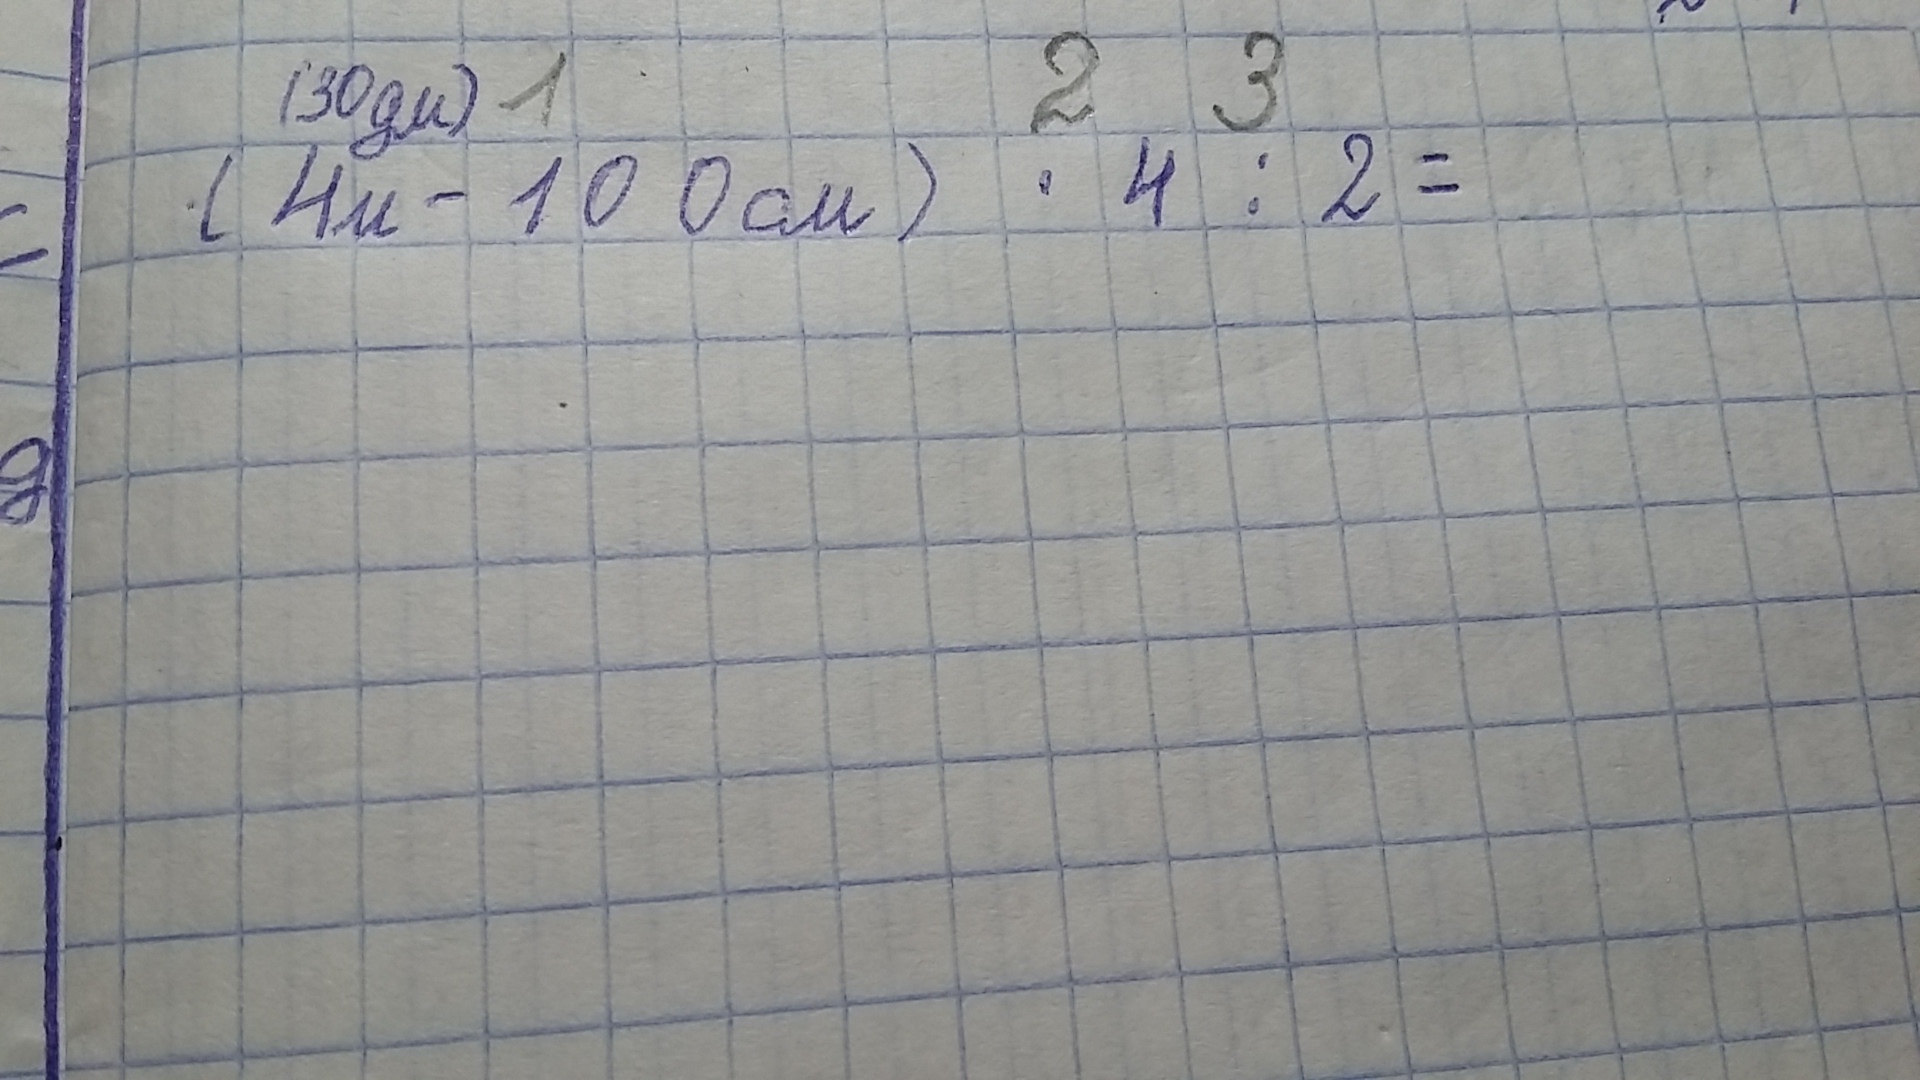 (30дм) 1 2 3
(4м - 100см) · 4 : 2 =